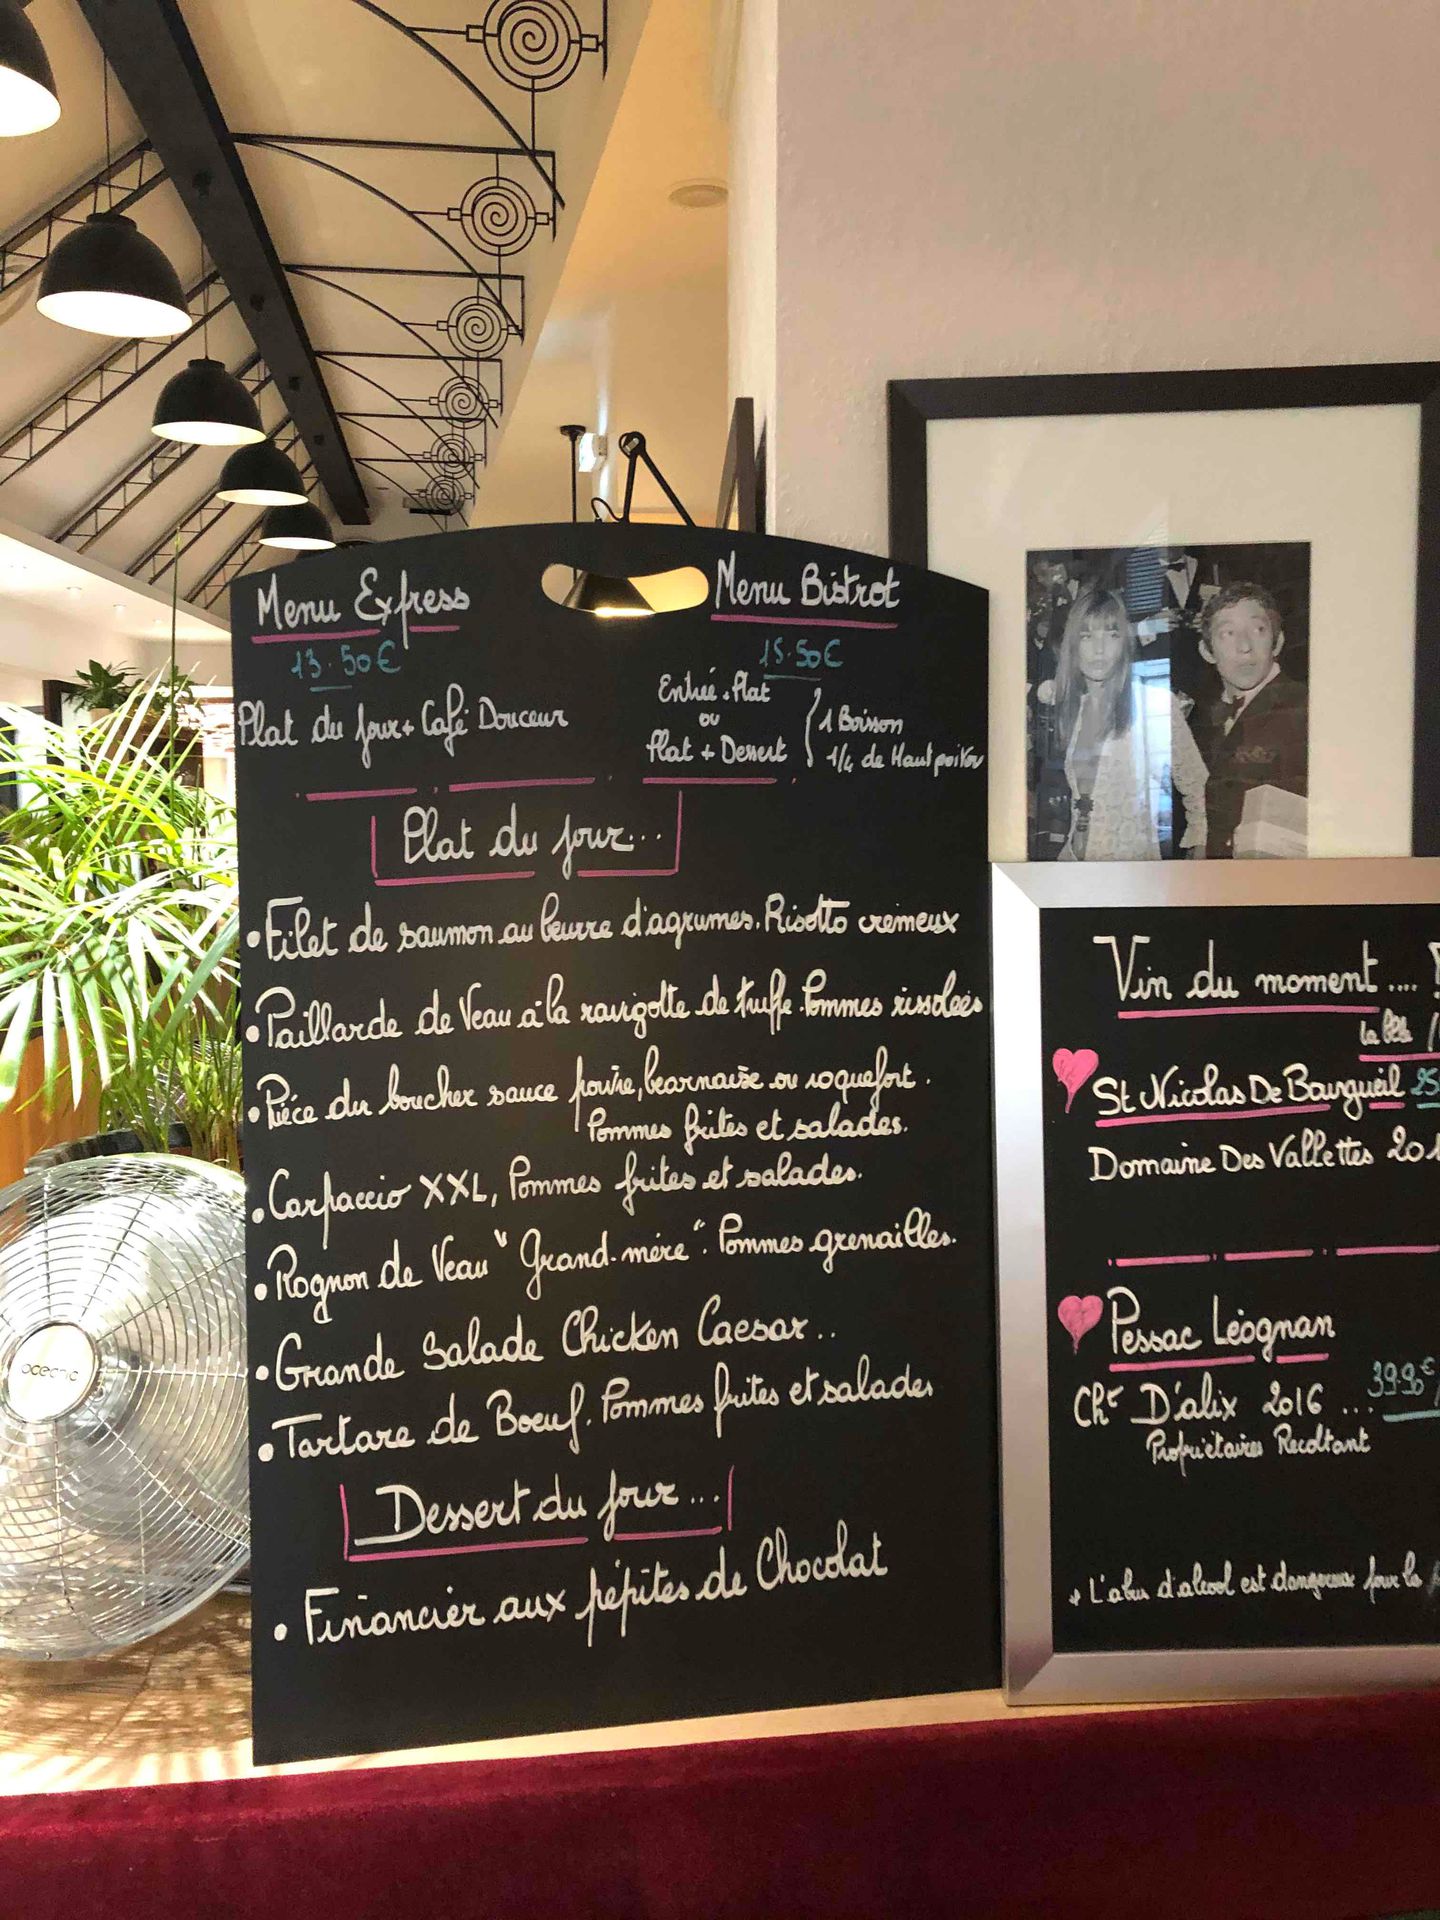 Menu Express
13.50€
Plat du jour + Café Douceur
Menu Bistrot
15.50€
Entrée + Plat
ou
Plat + Dessert
1 Boisson
1/4 de Haut poitou
Plat du jour...
• Filet de saumon au beurre d'agrumes. Risotto crémeux
• Paillarde de Veau à la ravigotte de truffe. Pommes rissolées
• Piéce du boucher sauce poivre, bearnaise ou roquefort.
Pommes frites et salades.
• Carpaccio XXL, Pommes frites et salades.
• Rognon de Veau "Grand-mére". Pommes grenailles.
• Grande Salade Chicken Caesar..
• Tartare de Boeuf. Pommes frites et salades
Dessert du jour...
• Financier aux pépites de Chocolat
Vin du moment....
la Blle /
St Nicolas De Bourgueil 25
Domaine Des Vallettes 201
Pessac Léognan
Cht D'alix 2016 ... 39.90€/
Propriétaires Recoltant
* L'abus d'alcool est dangereux pour la
oceanic